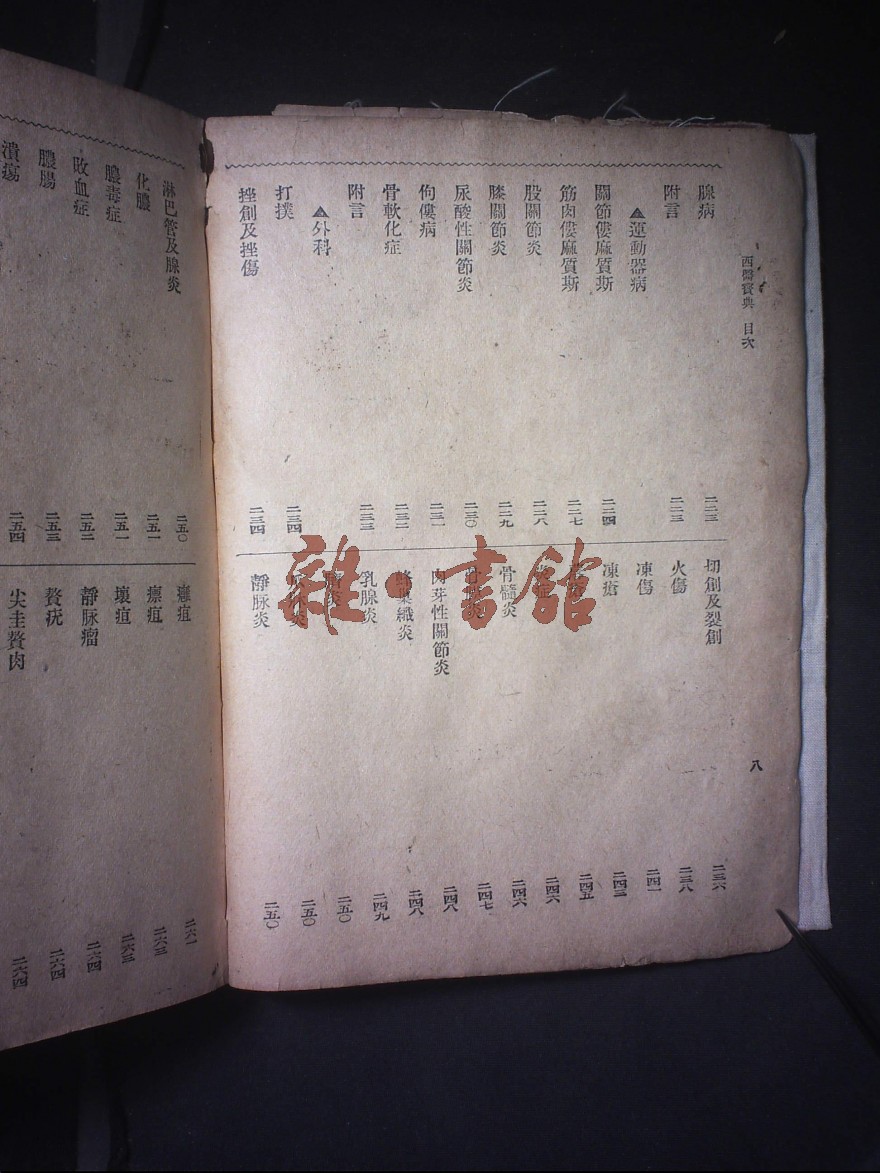 西醫寶典 目次
八
腺病 二二三
附言 二二三
▲運動器病
關節僂麻質斯 二二四
筋肉僂麻質斯 二二七
股關節炎 二二八
膝關節炎 二二九
尿酸性關節炎 二三〇
佝僂病 二三一
骨軟化症 二三二
附言 二三三
▲外科
打撲 二三四
挫創及挫傷 二三四
切創及裂創 二三六
火傷 二三八
凍傷 二四一
凍瘡 二四三
二四五
二四六
骨髓炎 二四六
二四七
肉芽性關節炎 二四八
蜂巢織炎 二四八
乳腺炎 二四九
二五〇
二五〇
靜脉炎 二五〇
淋巴管及腺炎 二五〇
化膿 二五一
膿毒症 二五一
敗血症 二五二
膿腸 二五三
潰瘍 二五四
癰疽 二六一
瘭疽 二六三
壞疽 二六三
靜脉瘤 二六四
贅疣 二六四
尖圭贅肉 二六四
雜·書館